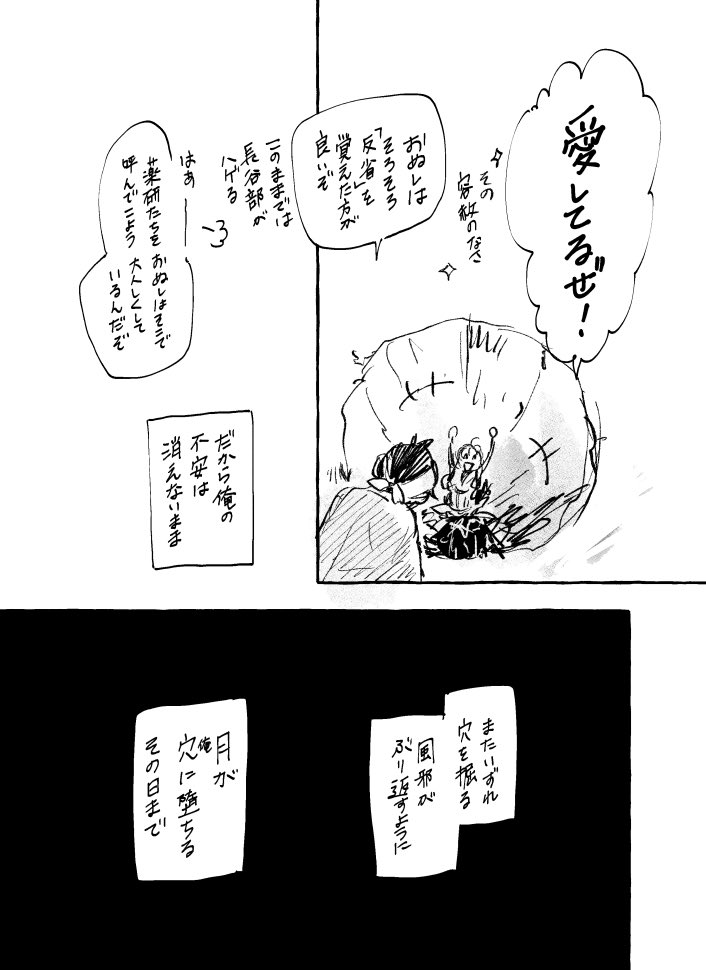 愛してるぜ！
その
容赦のなさ
おぬしは
そろそろ
「反省」を
覚えた方が
良いぞ
このままでは
長谷部が
ハゲる
はあ──
薬研たちを
呼んでこよう
おぬしはそこで
大人しくして
いるんだぞ
だから俺の
不安は
消えないまま
またいずれ
穴を掘る
風邪が
ぶり返すように
月が
俺
穴に堕ちる
その日まで